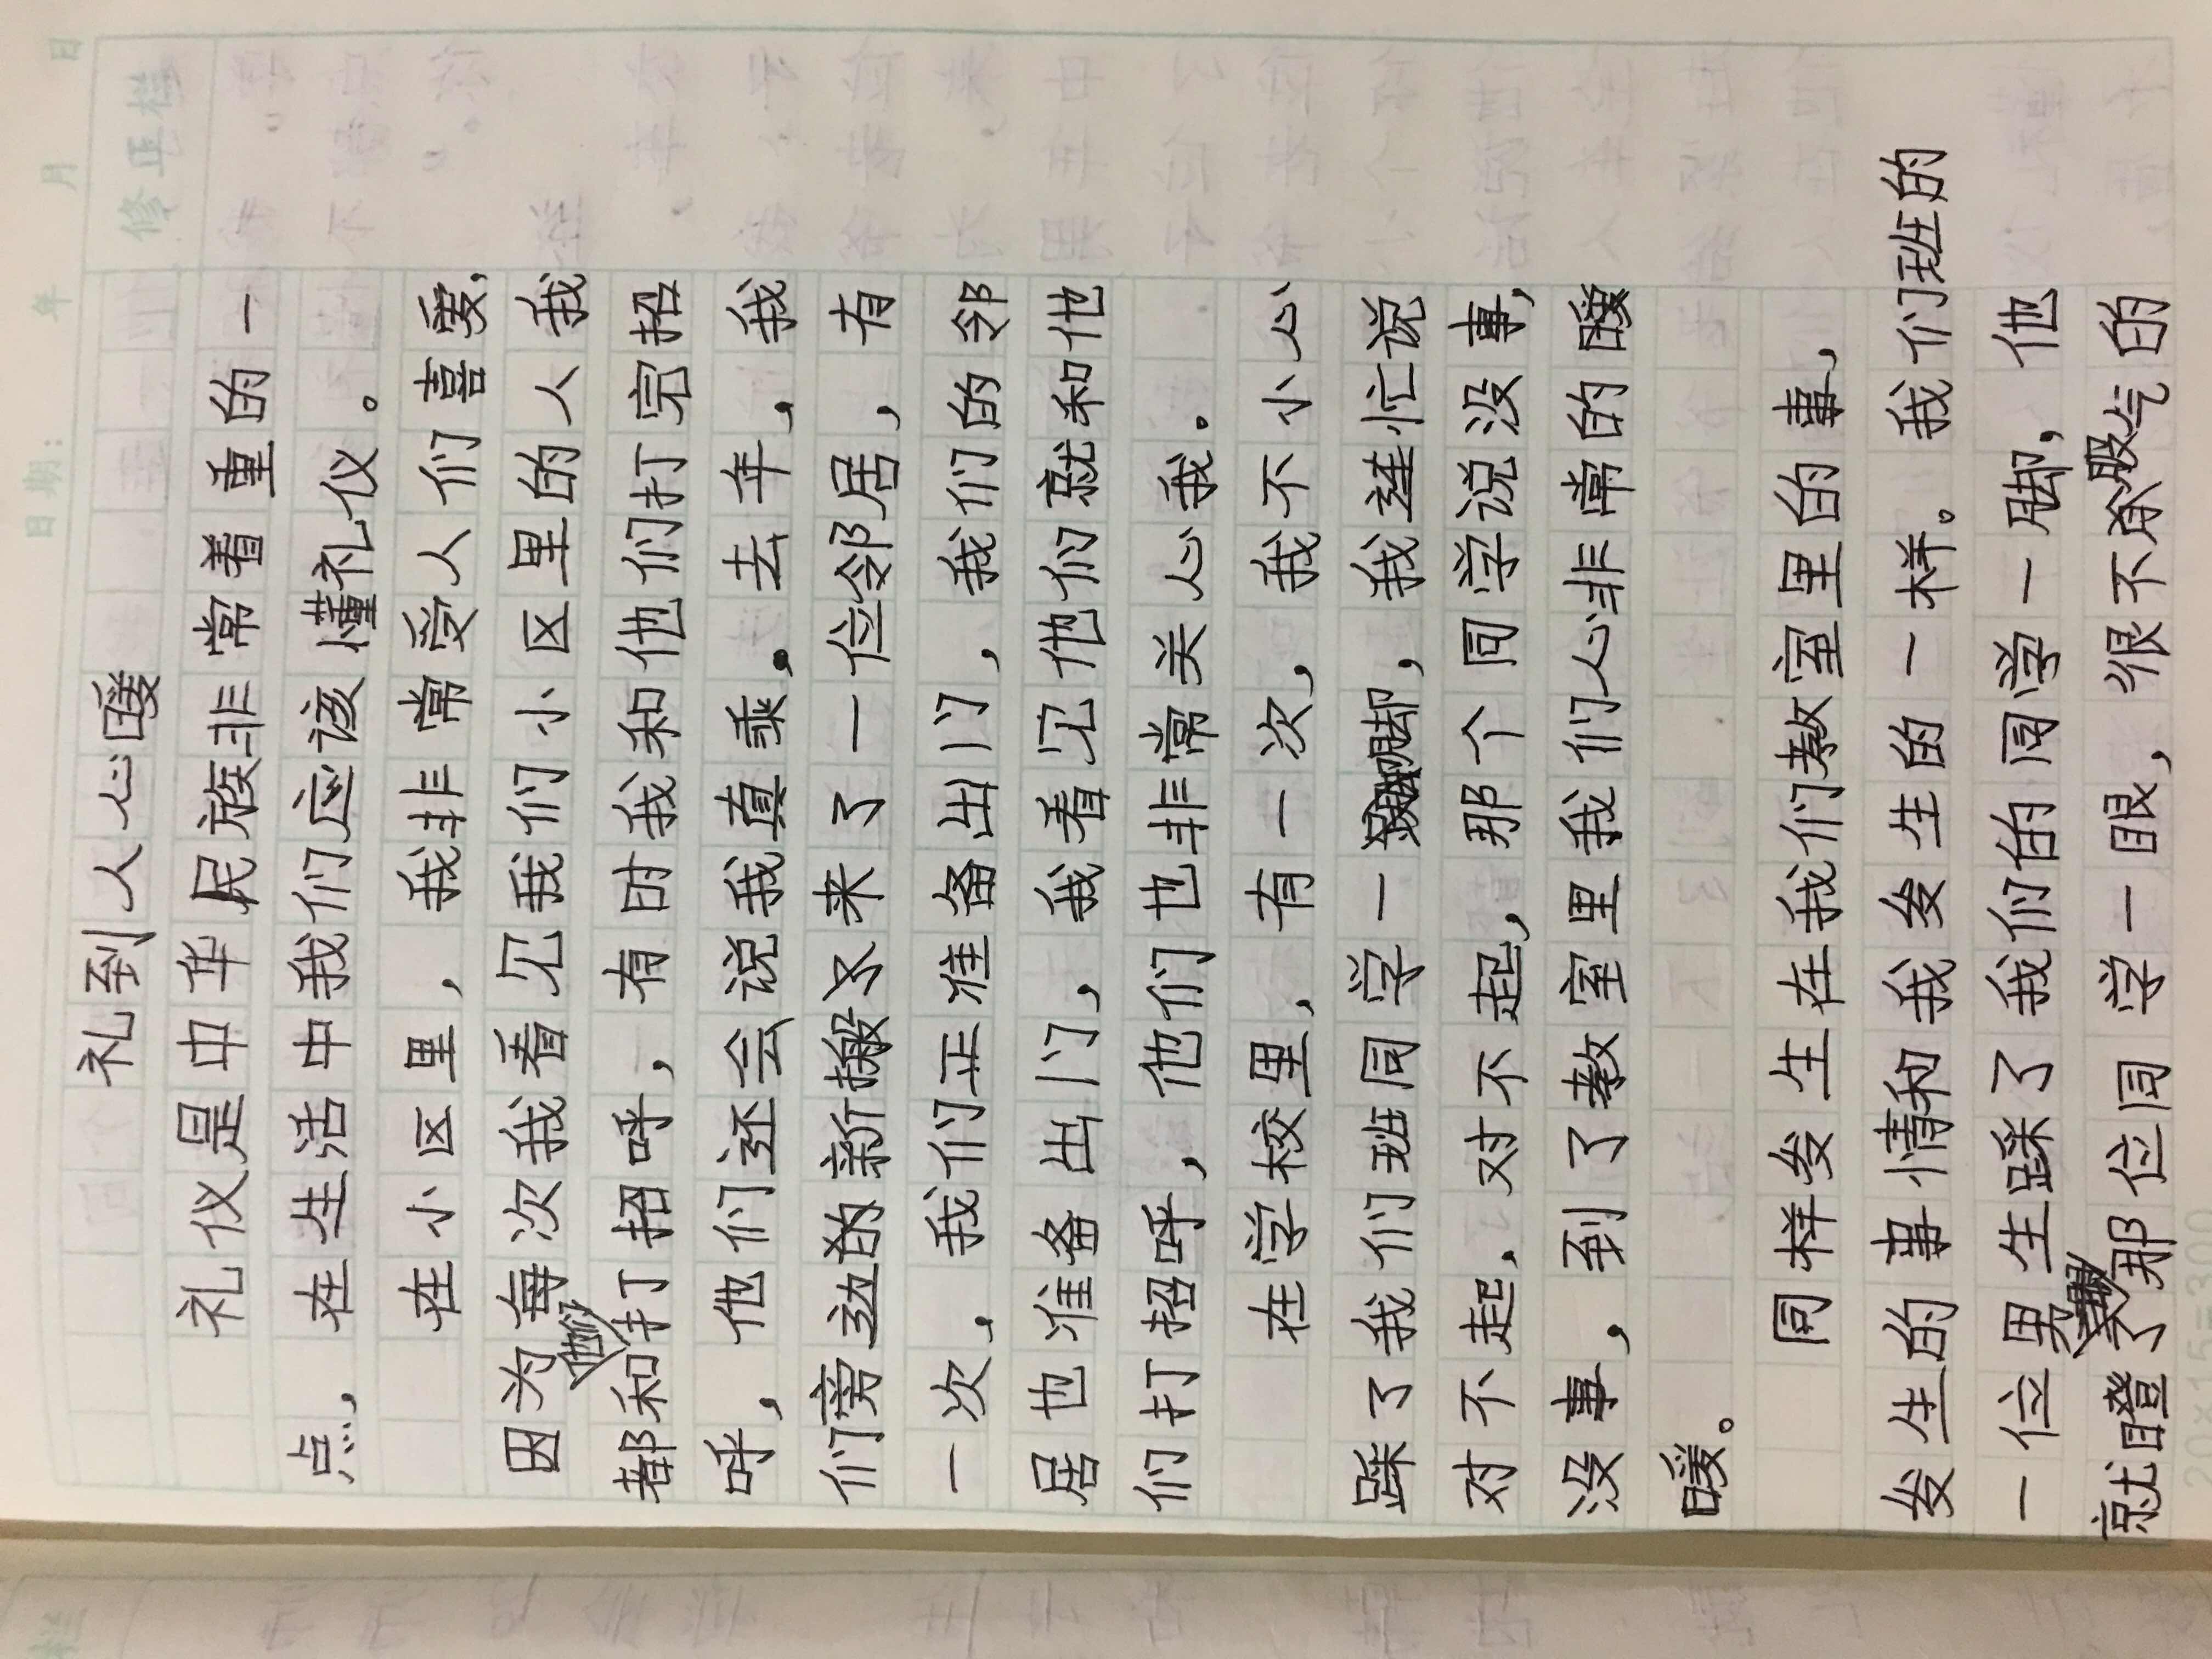 日期： 年 月 日
修正栏
礼到人心暖
礼仪是中华民族非常着重的一
点，在生活中我们应该懂礼仪。
在小区里，我非常受人们喜爱，
因为每次我看见我们小区里的人我
都和他们打招呼，有时我和他们打完招
呼，他们还会说我真乖。去年，我
们旁边的新搬又来了一位邻居，有
一次，我们正准备出门，我们的邻
居也准备出门，我看见他们就和他
们打招呼，他们也非常关心我。
在学校里，有一次，我不小心
踩了我们班同学一脚，我连忙说
对不起，对不起，那个同学说没事，
没事，到了教室里我们心非常的暖
暖。
同样发生在我们教室里的事，
发生的事情和我发生的一样。我们班的
一位男生踩了我们的同学一脚，他
就瞪了那位同学一眼，很不服气的
20×15=300
栏